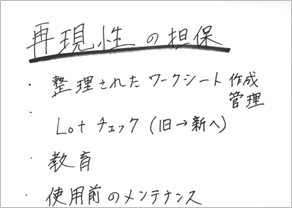 再現性の担保
・整理されたワークシート作成
管理
・Lotチェック(旧→新へ)
・教育
・使用前のメンテナンス